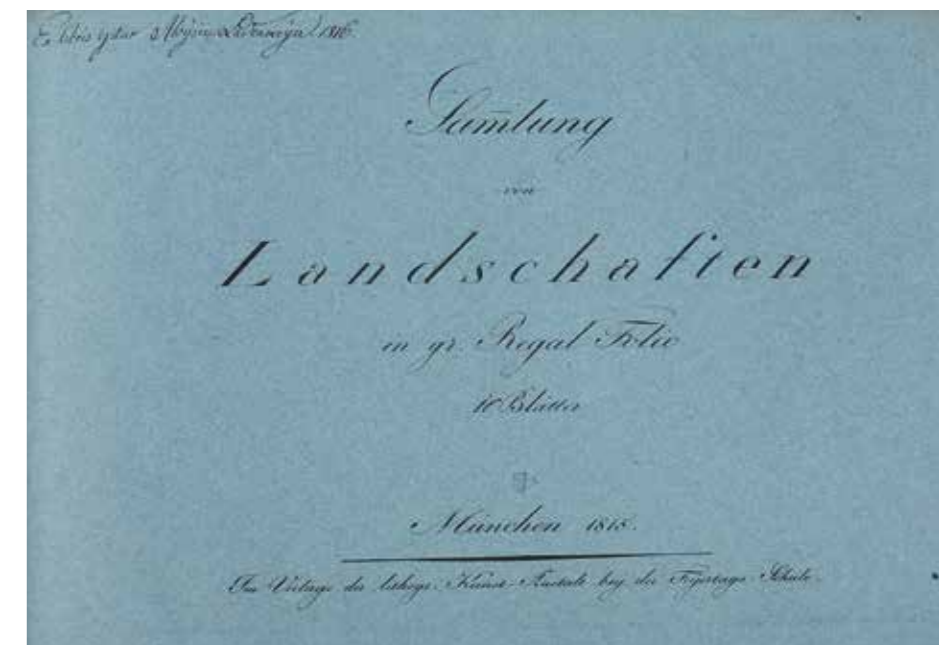 Ex libris 1816.
Sam̄lung
von
Landschaften
in gr. Regal Folio
10 Blätter
München 1815.
Im Verlage der lithogr. Kunst-Anstalt bey der Feyertags-Schule.